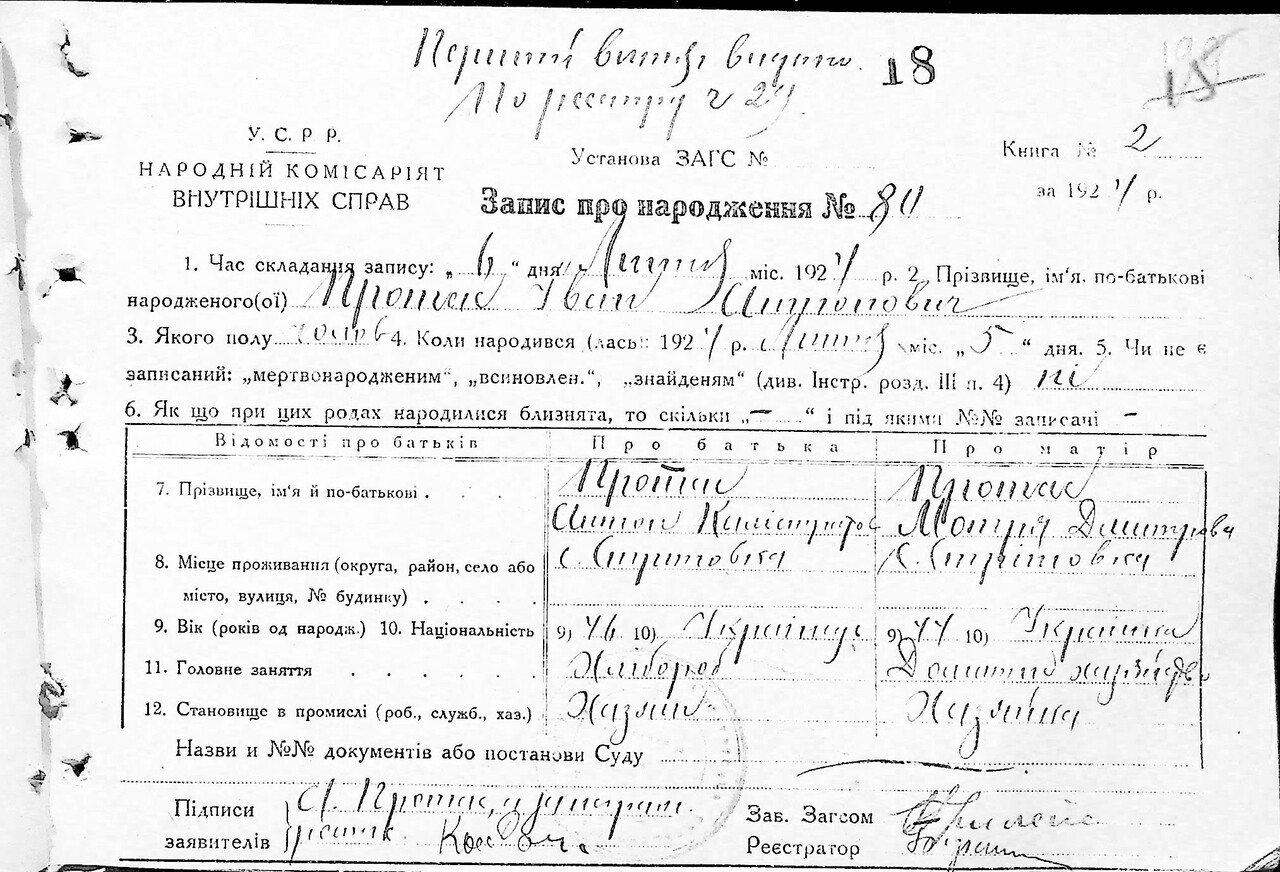 Перший витяг видано
По реєстру ч 24
18
18
У. С. Р. Р.
НАРОДНІЙ КОМІСАРІЯТ
ВНУТРІШНІХ СПРАВ
Установа ЗАГС №
Запис про народження №
Книга № 2
за 1924 р.
1. Час складання запису: „ 6 “ дня міс. 1924 р. 2. Прізвище, ім'я, по-батькові
народженого(ої) Протас Іван Антонович
3. Якого полу 4. Коли народився (лась): 1924 р. міс. „ 5 “ дня. 5. Чи не є
записаний: „мертвонародженим“, „всиновлен.“, „знайденям“ (див. Інстр. розд. III п. 4) ні
6. Як що при цих родах народилися близнята, то скільки „ — “ і під якими №№ записачі —
Відомості про батьків Про батька Про матір
7. Прізвище, ім'я й по-батькові . . . Протас Протас
Антон Калістратов Мотря Дмитрова
8. Місце проживання (округа, район, село або с. с.
місто, вулиця, № будинку) . . . .
9. Вік (років од народж.) 10. Національність 9) 46 10) Українець 9) 44 10) Українка
11. Головне заняття . . . . . . Хлібороб Домашнє хазяйство
12. Становище в промислі (роб., служб., хаз.) Хазяїн Хазяйка
Назви и №№ документів або постанови Суду
Підписи А. Протас, а
заявителів
Зав. Загсом
Реєстратор